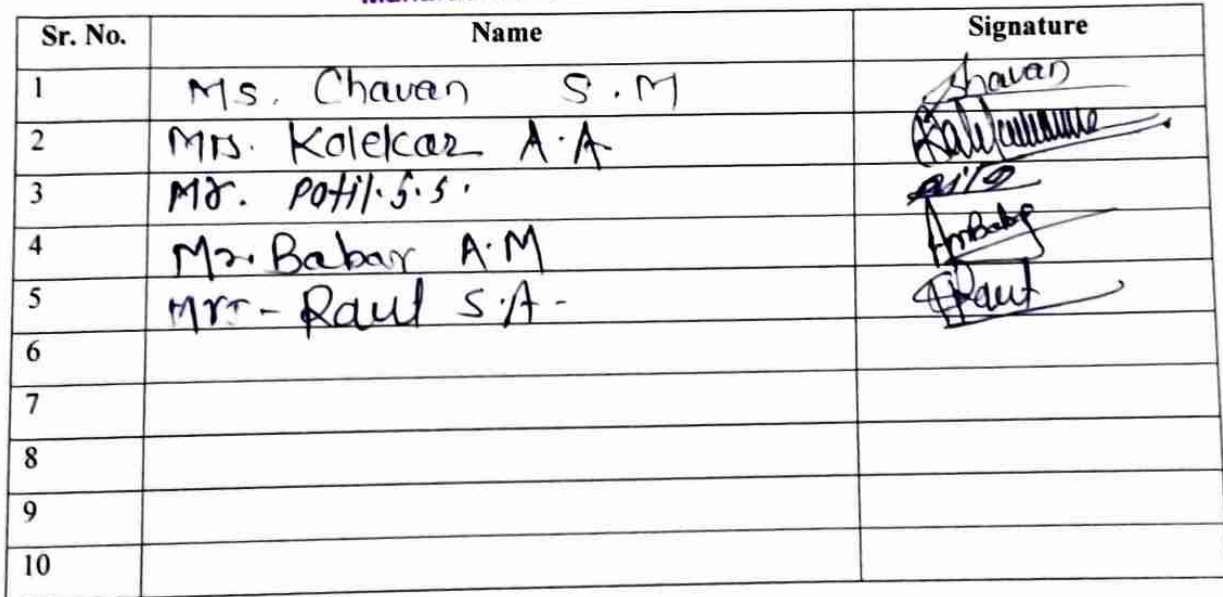 Sr. No. Name Signature
1 Ms. Chavan S.M Chavan
2 Mrs. Kolekar A.A
3 Mr. Patil.S.S.
4 Mr. Babar A.M AmBabar
5 Mrs - Raut S.A - Raut
6
7
8
9
10